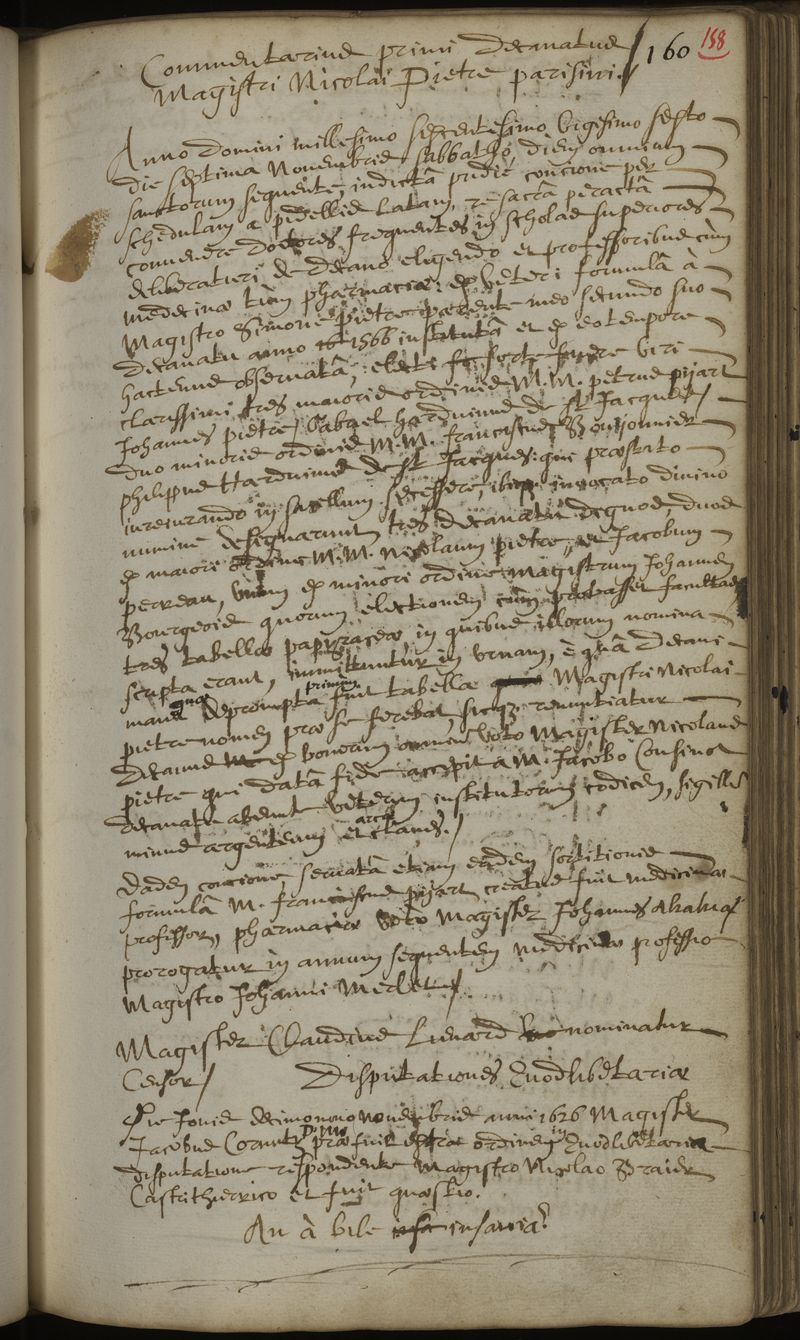 160 158
Commentarius primi decanatus
Magistri Nicolai Pietre parisini.
Anno domini millesimo sexcentesimo vigesimo sexto
die septima Novembris sabbatho, diem omnium
sanctorum sequente, indictâ pridie concione per
schedulam a pidellis latam, re sacrâ peractâ
convenere doctores frequentes in scholas superiores
deliberaturi de decano eligendo et professoribus cùm
medecinæ tùm pharmaciæ: ex veteri formulâ à
Magistro Simone Pietre parente meo secundo suo
decanatu anno 1566 institutâ et ex eo tempore
hactenus observatâ, electi sorte fuere viri
clarissimi tres maioris ordinis M. M. petrus pijart
Johannes pietre, Gabriel harduinus de St Jacques
duo minoris ordinis M. M. franciscus Boujonnier
philippus Harduinus de St Jacques: qui præstito
iureiurando in sacellum secessere, ibique invocato divino
numine designarunt tres decanatu dignos, duos
ex maiori ordine M. M. Nicolaum pietre, et Jacobum
perreau, unum ex minori ordine magistrum Johannem
Bourgeois quorum electionem cùm probasset facultas
tres tabellæ papyraceæ in quibus illorum nomina
scripta erant, immittuntur in urnam, è quâ decani
manu deprompta primùm fuit tabella quæ Magistri Nicolai
pietre nomen præ se ferebat, sicque renuntiatur
decanus ex bonorum omnium voto Magister Nicolaus
pietre qui datâ fide accepit a M. Jacobo Cousinot
decanatu abeunte veterem institutorum codicem, sigillum
minus argenteum et arcæ claves.
Eadem concione, servatâ etiam eâdem sortitionis
formulâ M. franciscus pijart creatus fuit medicinæ
professor, pharmaciæ vero Magister Johannes Akakia
prorogatur in annum sequentem medicinæ professio
Magistro Johanni Merlet.
Magister Claudius Lienard nominatur
Censor
Disputationes Quodlibetariæ
Die Jovis decimonono Novembris anni 1626 Magister
Jacobus Cornuti præfuit extra ordinem in Quodlibetaria
disputatione respondente Magistro Nicolao Braier
Castrithierrico et fuit quæstio.
An à bile insania?